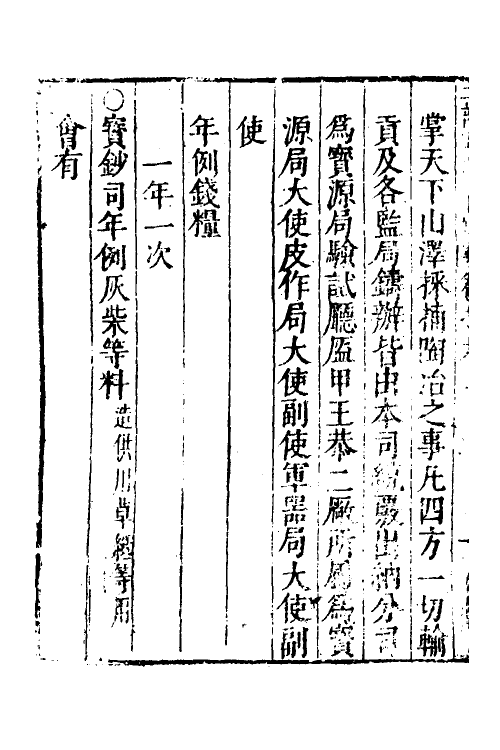 掌天下山澤採捕陶冶之事凡四方一切輸
貢及各監局鑄辦皆由本司綂度出納分司
爲寳源局驗試廳盔甲王恭二廠所屬爲寳
源局大使皮作局大使副使軍器局大使副
使
年例錢糧
一年一次
○寳鈔司年例灰柴等料造供用草紙等用
會有